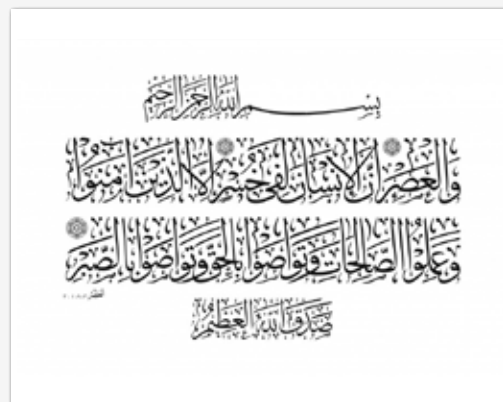 بِسْمِ اللهِ الرَّحْمٰنِ الرَّحِيمِ
وَالْعَصْرِ إِنَّ الْإِنْسَانَ لَفِي خُسْرٍ إِلَّا الَّذِينَ آمَنُوا
وَعَمِلُوا الصَّالِحَاتِ وَتَوَاصَوْا بِالْحَقِّ وَتَوَاصَوْا بِالصَّبْرِ
صَدَقَ اللهُ الْعَظِيمُ